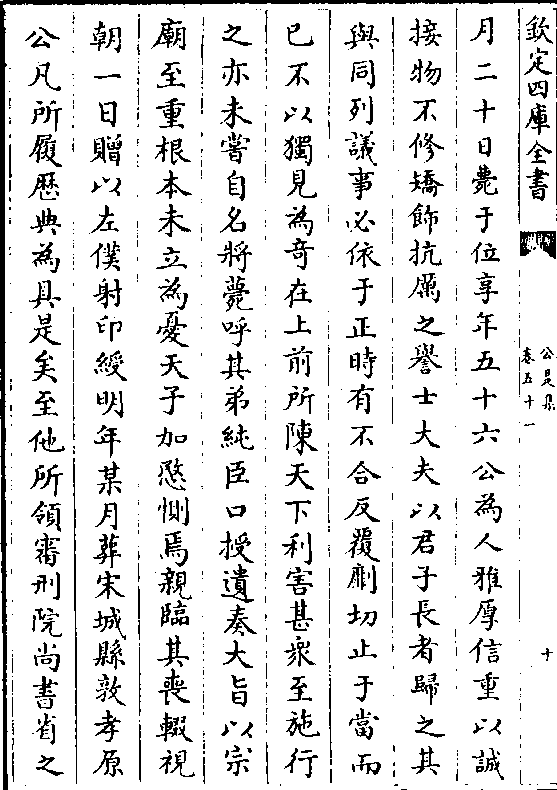 欽定四庫全書
公是集
卷五十一
十
月二十日薨于位享年五十六公為人雅厚信重以誠
接物不修矯飾抗厲之譽士大夫以君子長者歸之其
與同列議事必依于正時有不合反覆劘切止于當而
已不以獨見為奇在上前所陳天下利害甚衆至施行
之亦未嘗自名將薨呼其弟純臣口授遺奏大旨以宗
廟至重根本未立為憂天子加愍惻焉親臨其喪輟視
朝一日贈以左僕射印綬明年某月葬宋城縣敦孝原
公凡所履歷典為具是矣至他所領審刑院尚書省之